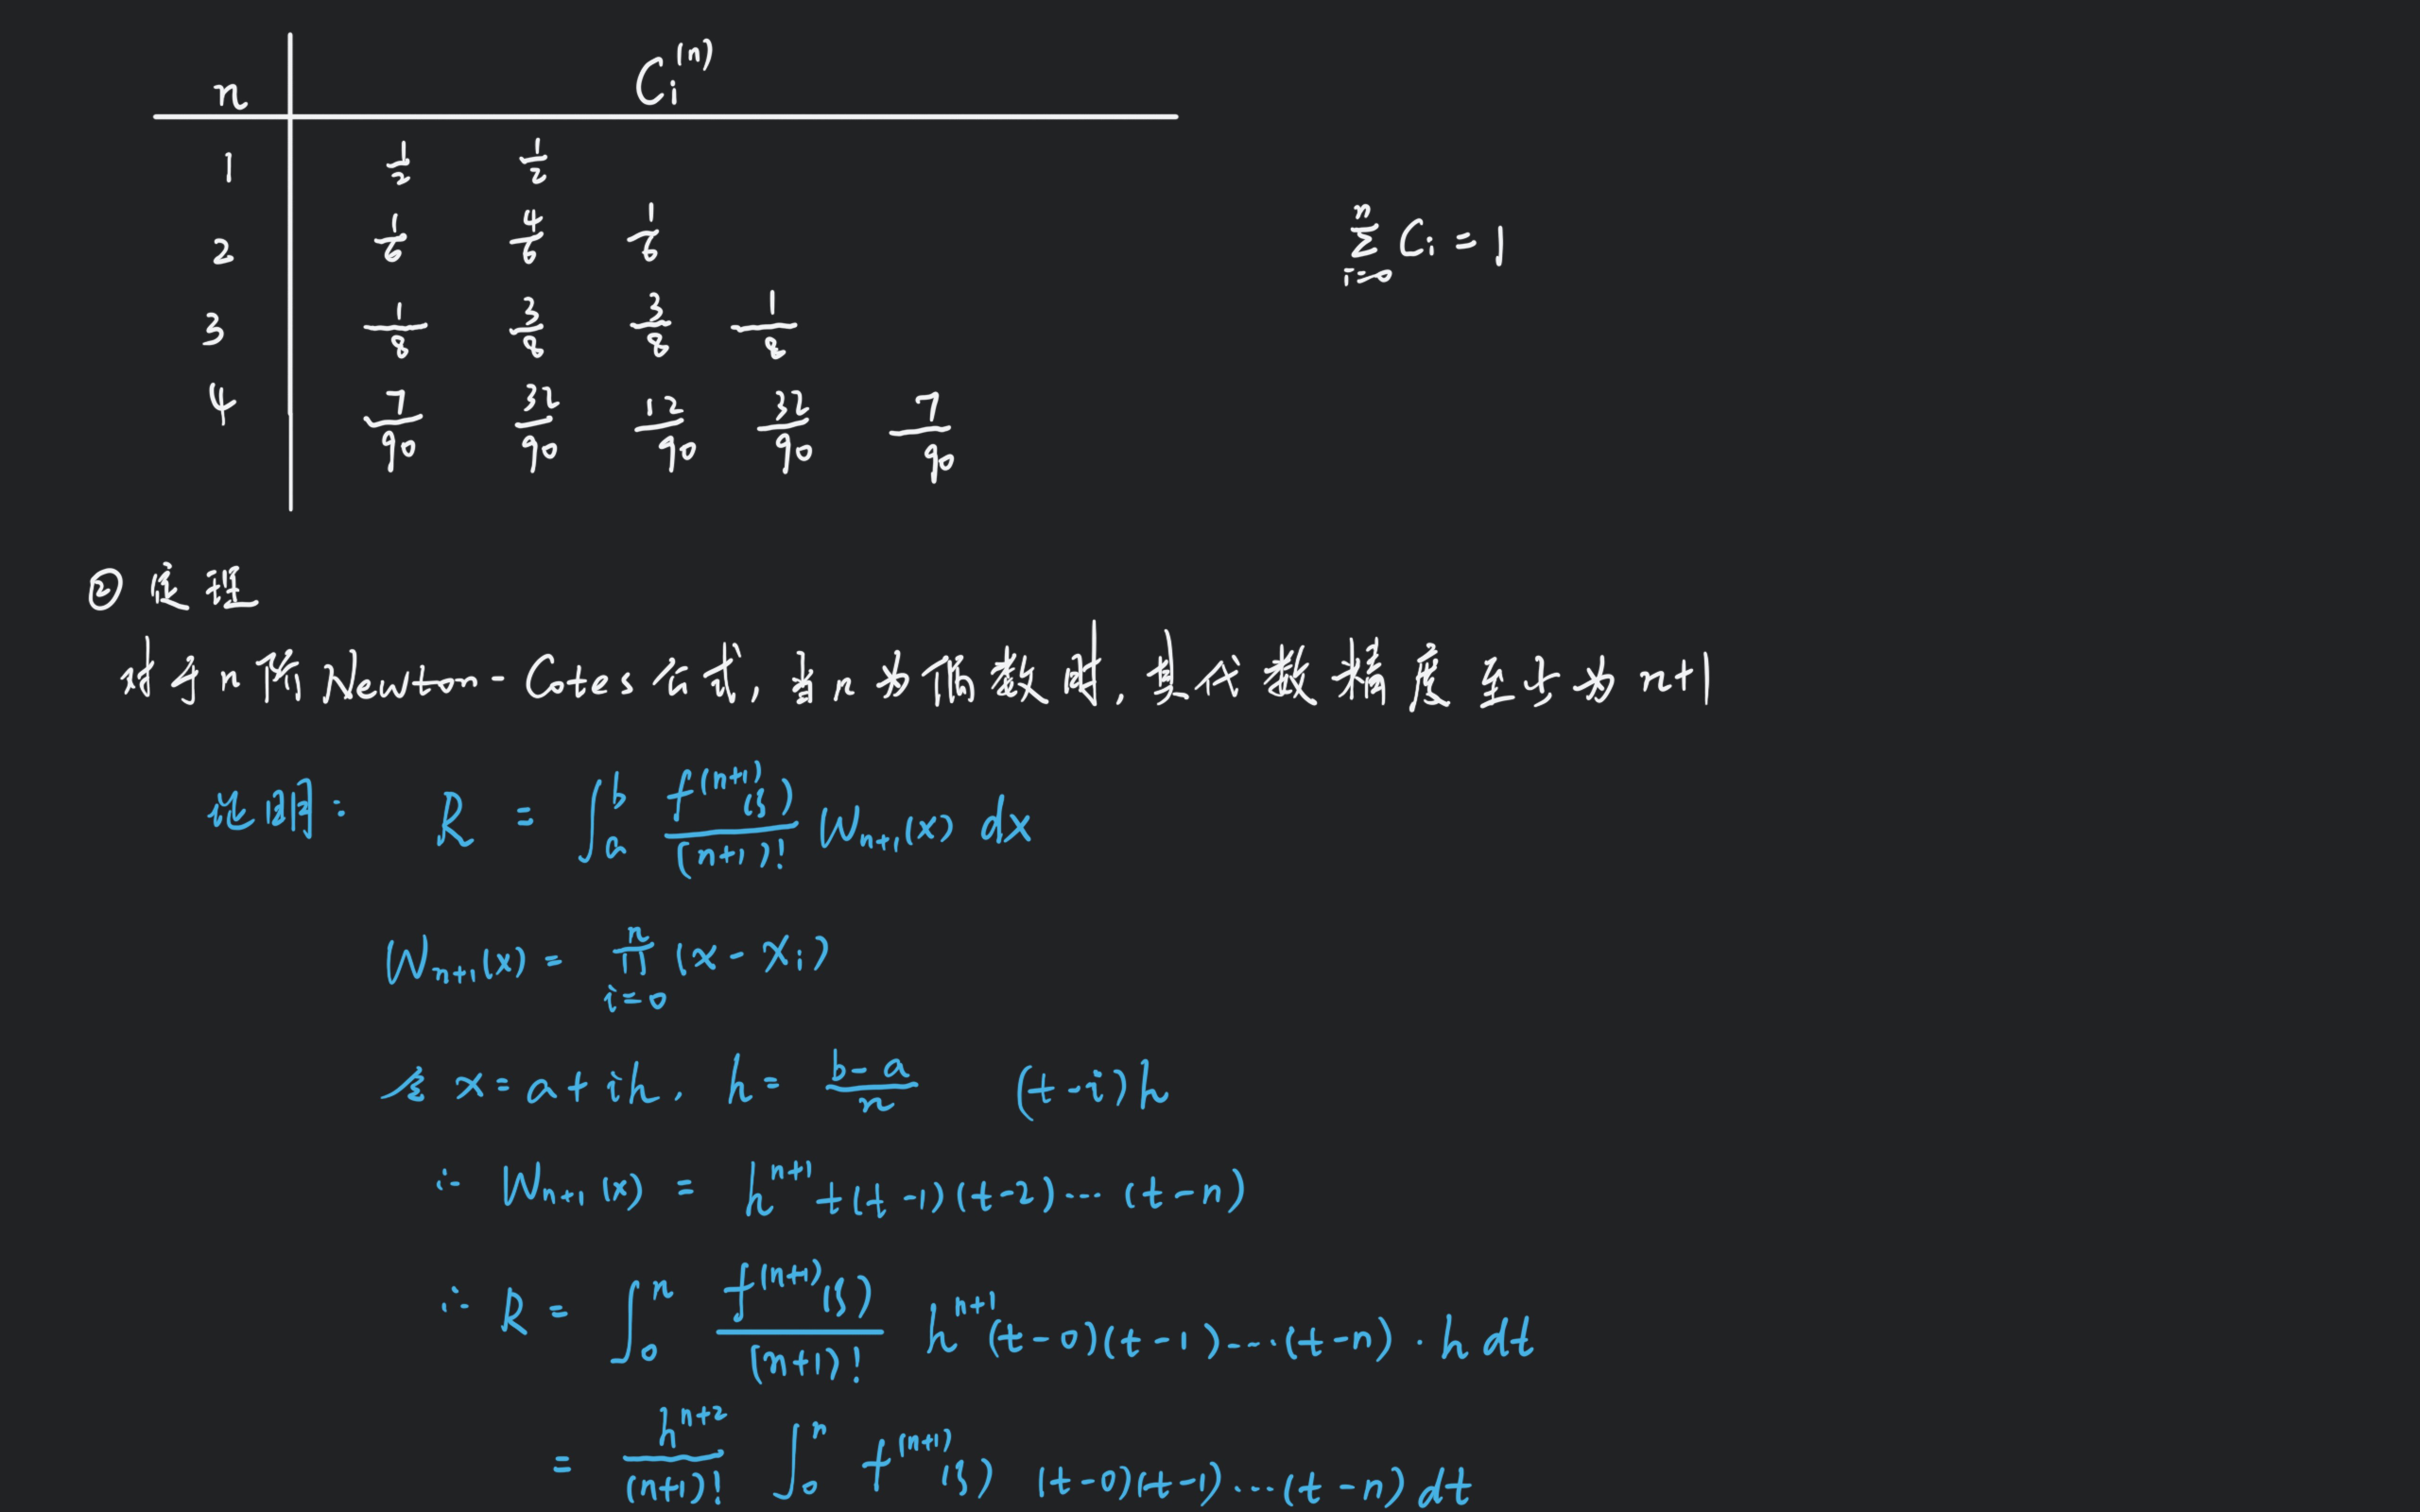 n C_i^{(n)}
1 1/2 1/2
2 1/6 4/6 1/6
\sum_{i=0}^{n} C_i = 1
3 1/8 3/8 3/8 1/8
4 7/90 32/90 12/90 32/90 7/90
② 定理
对于n阶Newton-Cotes公式,当n为偶数时,其代数精度至少为n+1
证明: R = \int_a^b \frac{f^{(n+1)}(ξ)}{(n+1)!} W_{n+1}(x) dx
W_{n+1}(x) = \prod_{i=0}^{n} (x - x_i)
令 x = a + ih, h = \frac{b-a}{n} (t-i)h
∴ W_{n+1}(x) = h^{n+1} t(t-1)(t-2)···(t-n)
∴ R = \int_0^n \frac{f^{(n+1)}(ξ)}{(n+1)!} h^{n+1} (t-0)(t-1)···(t-n)·h dt
= \frac{h^{n+2}}{(n+1)!} \int_0^n f^{(n+1)}(ξ) (t-0)(t-1)···(t-n) dt